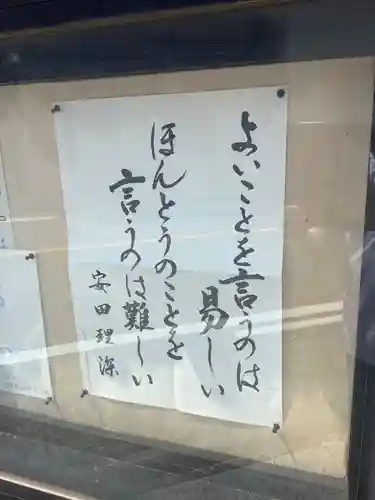 よいことを言うのは
易しい
ほんとうのことを
言うのは難しい
安田理深